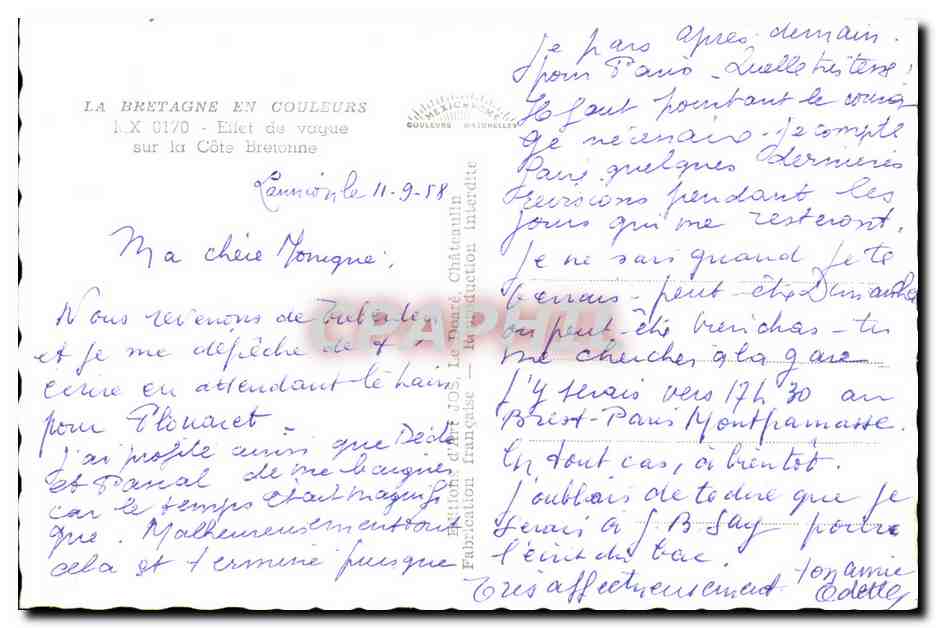 LA BRETAGNE EN COULEURS
MX 0170 - Effet de vague
sur la Côte Bretonne
MEXICHROME
COULEURS NATURELLES
Editions d'Art JOS, Le Doaré, Châteaulin
Fabrication française — Reproduction interdite
CPAPHIL
Lannion, le 11-9-58
Ma chère Monique,
Nous revenons de Trebeurden
et je me dépêche de t'
écrire en attendant le train
pour Plouaret -
J'ai profité ainsi que Dédé
et Pascal de me baigner
car le temps était magnifi
que. Malheureusement tout
cela est terminé puisque
je pars après-demain.
pour Paris - Quelle tristesse!
Il faut pourtant le coura
ge nécessaire - je compte
faire quelques dernières
révisions pendant les
jours qui me resteront.
Je ne sais quand je te
verrais - peut-être Dimanche
ou peut-être viendras-tu
me chercher à la gare
J'y serais vers 17h30 au
Brest-Paris Montparnasse.
En tout cas, à bientôt.
J'oubliais de te dire que je
serais à J B Say pour
l'écrit du bac.
Très affectueusement
ton amie
Odette